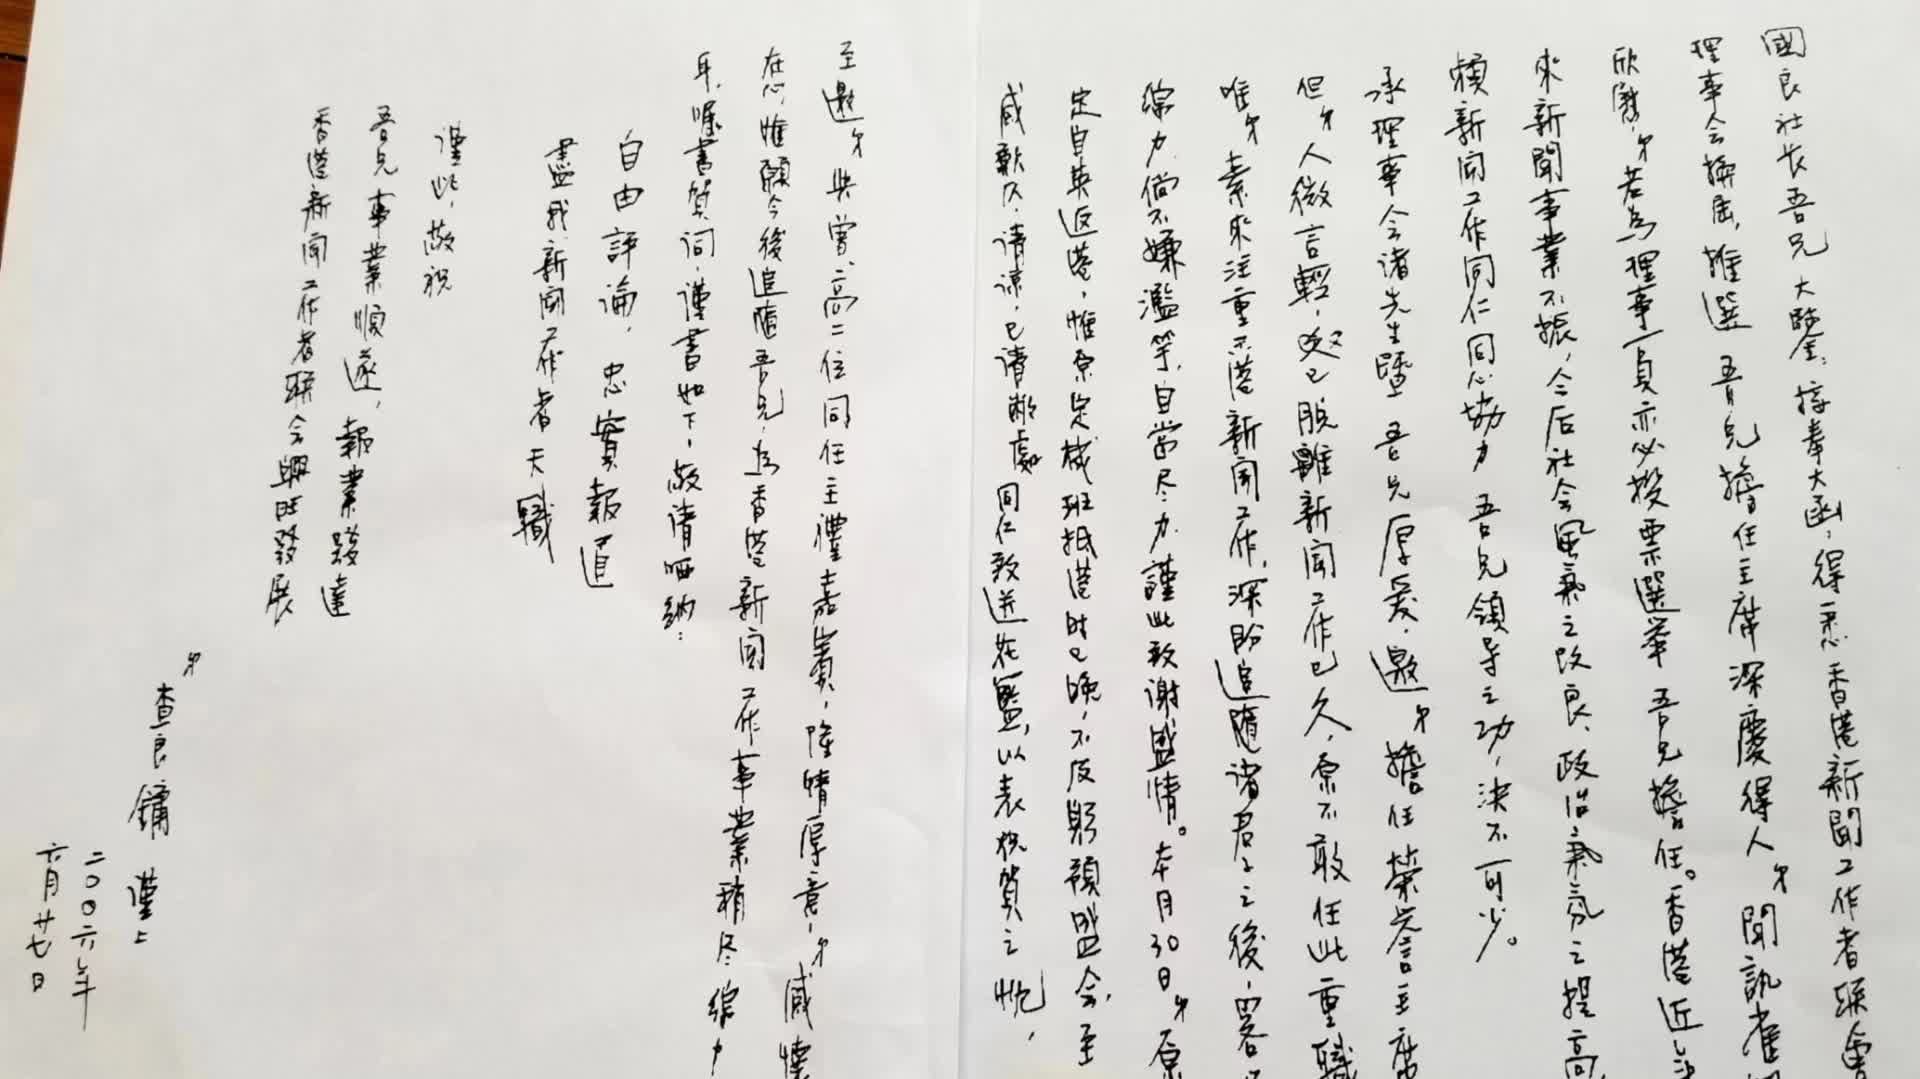 國良社長吾兄大鑒：接奉大函，得悉香港新聞工作者聯會
理事会換屆，推選 吾兄擔任主席深慶得人，弟聞訊雀
欣慰，弟若為理事一員亦必投票選举 吾兄擔任。香港近年
來新聞事業不振，今后社会風氣之改良、政治氣氛之提高，
賴新闻工作同仁同心協力 吾兄領导之功，決不可少。
承理事会诸先生暨 吾兄厚爱，邀弟擔任榮誉主席
但弟人微言輕，又已脫離新闻工作已久，原不敢任此重職
唯弟素來注重 港新闻工作，深盼追隨诸君子之後，畧
綿力，倘不嫌濫竽，自當尽力，謹此致谢盛情。本月30日，弟原
定自英返港，惟原定 班抵港时已晚，不及躬預盛会，至
感歉仄，请谅，已请敝處同仁致送花籃，以表祝贺之忱，
至邀弟與曾、高二位同任主禮嘉賓，隆情厚意，弟感懷
在心，惟願今後追隨吾兄，为香港新闻工作事業稍尽綿力
耳，囑書贺词，谨書如下，敬请哂纳：
自由評論，忠實報道
盡我新闻工作者天職
谨此，敬祝
吾兄事業順遂，報業發達
香港新闻工作者联会興旺發展
弟
查良鏞 谨上
二〇〇六年
六月廿七日